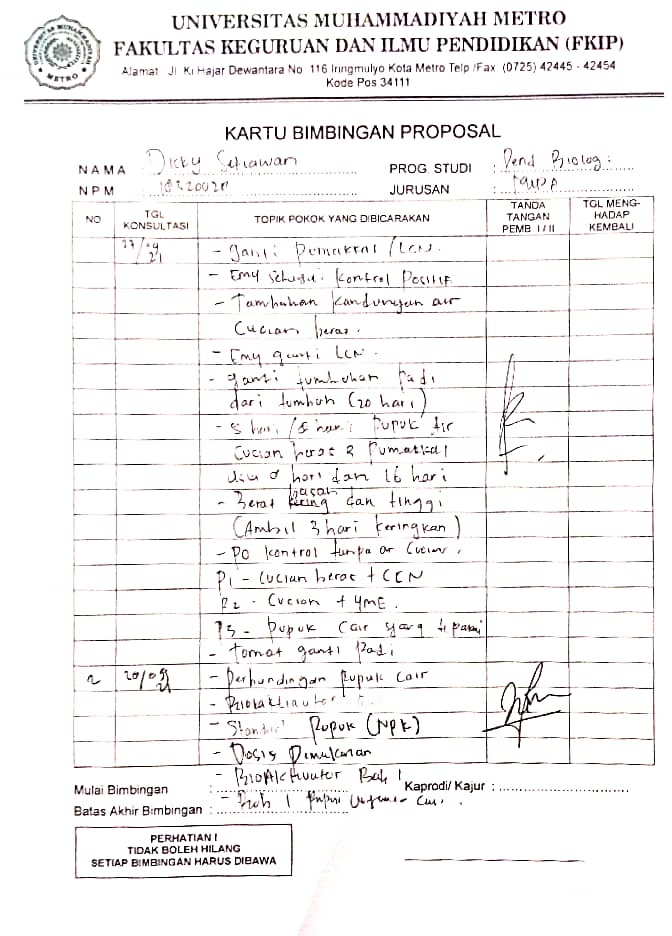 UNIVERSITAS MUHAMMADIYAH METRO
FAKULTAS KEGURUAN DAN ILMU PENDIDIKAN (FKIP)
Alamat Jl. Ki Hajar Dewantara No. 116 Iringmulyo Kota Metro Telp./Fax. (0725) 42445 - 42454
Kode Pos 34111
KARTU BIMBINGAN PROPOSAL
NAMA : Dicky Setiawan
PROG. STUDI : Pend Biologi
NPM :
JURUSAN :
NO TGL KONSULTASI TOPIK POKOK YANG DIBICARAKAN TANDA TANGAN PEMB. I / II TGL MENG-HADAP KEMBALI
- Ganti /LCN.
- Kontrol Positif
- Tambahan kandungan air
Cucian beras.
- Emy ganti LCN.
- Ganti tumbuhan Padi
dari tumbuh (20 hari)
- 8 hari / 8 hari Pupuk Air
Cucian beras &
hari dan 16 hari
- Berat basah kering dan tinggi
(Ambil 3 hari keringkan)
- P0 kontrol tanpa air Cucian.
P1 - Cucian beras + LCN
P2 - Cucian + YME.
P3 - Pupuk Cair yang
- Tomat ganti Padi
2 20/09 21 - Perbandingan Pupuk Cair
- Bioaktivator
- Standar Pupuk (NPK)
- Dosis
- BioAktivator Bab 1
Mulai Bimbingan :
Kaprodi/ Kajur :
- Bab 1
Batas Akhir Bimbingan :
PERHATIAN !
TIDAK BOLEH HILANG
SETIAP BIMBINGAN HARUS DIBAWA